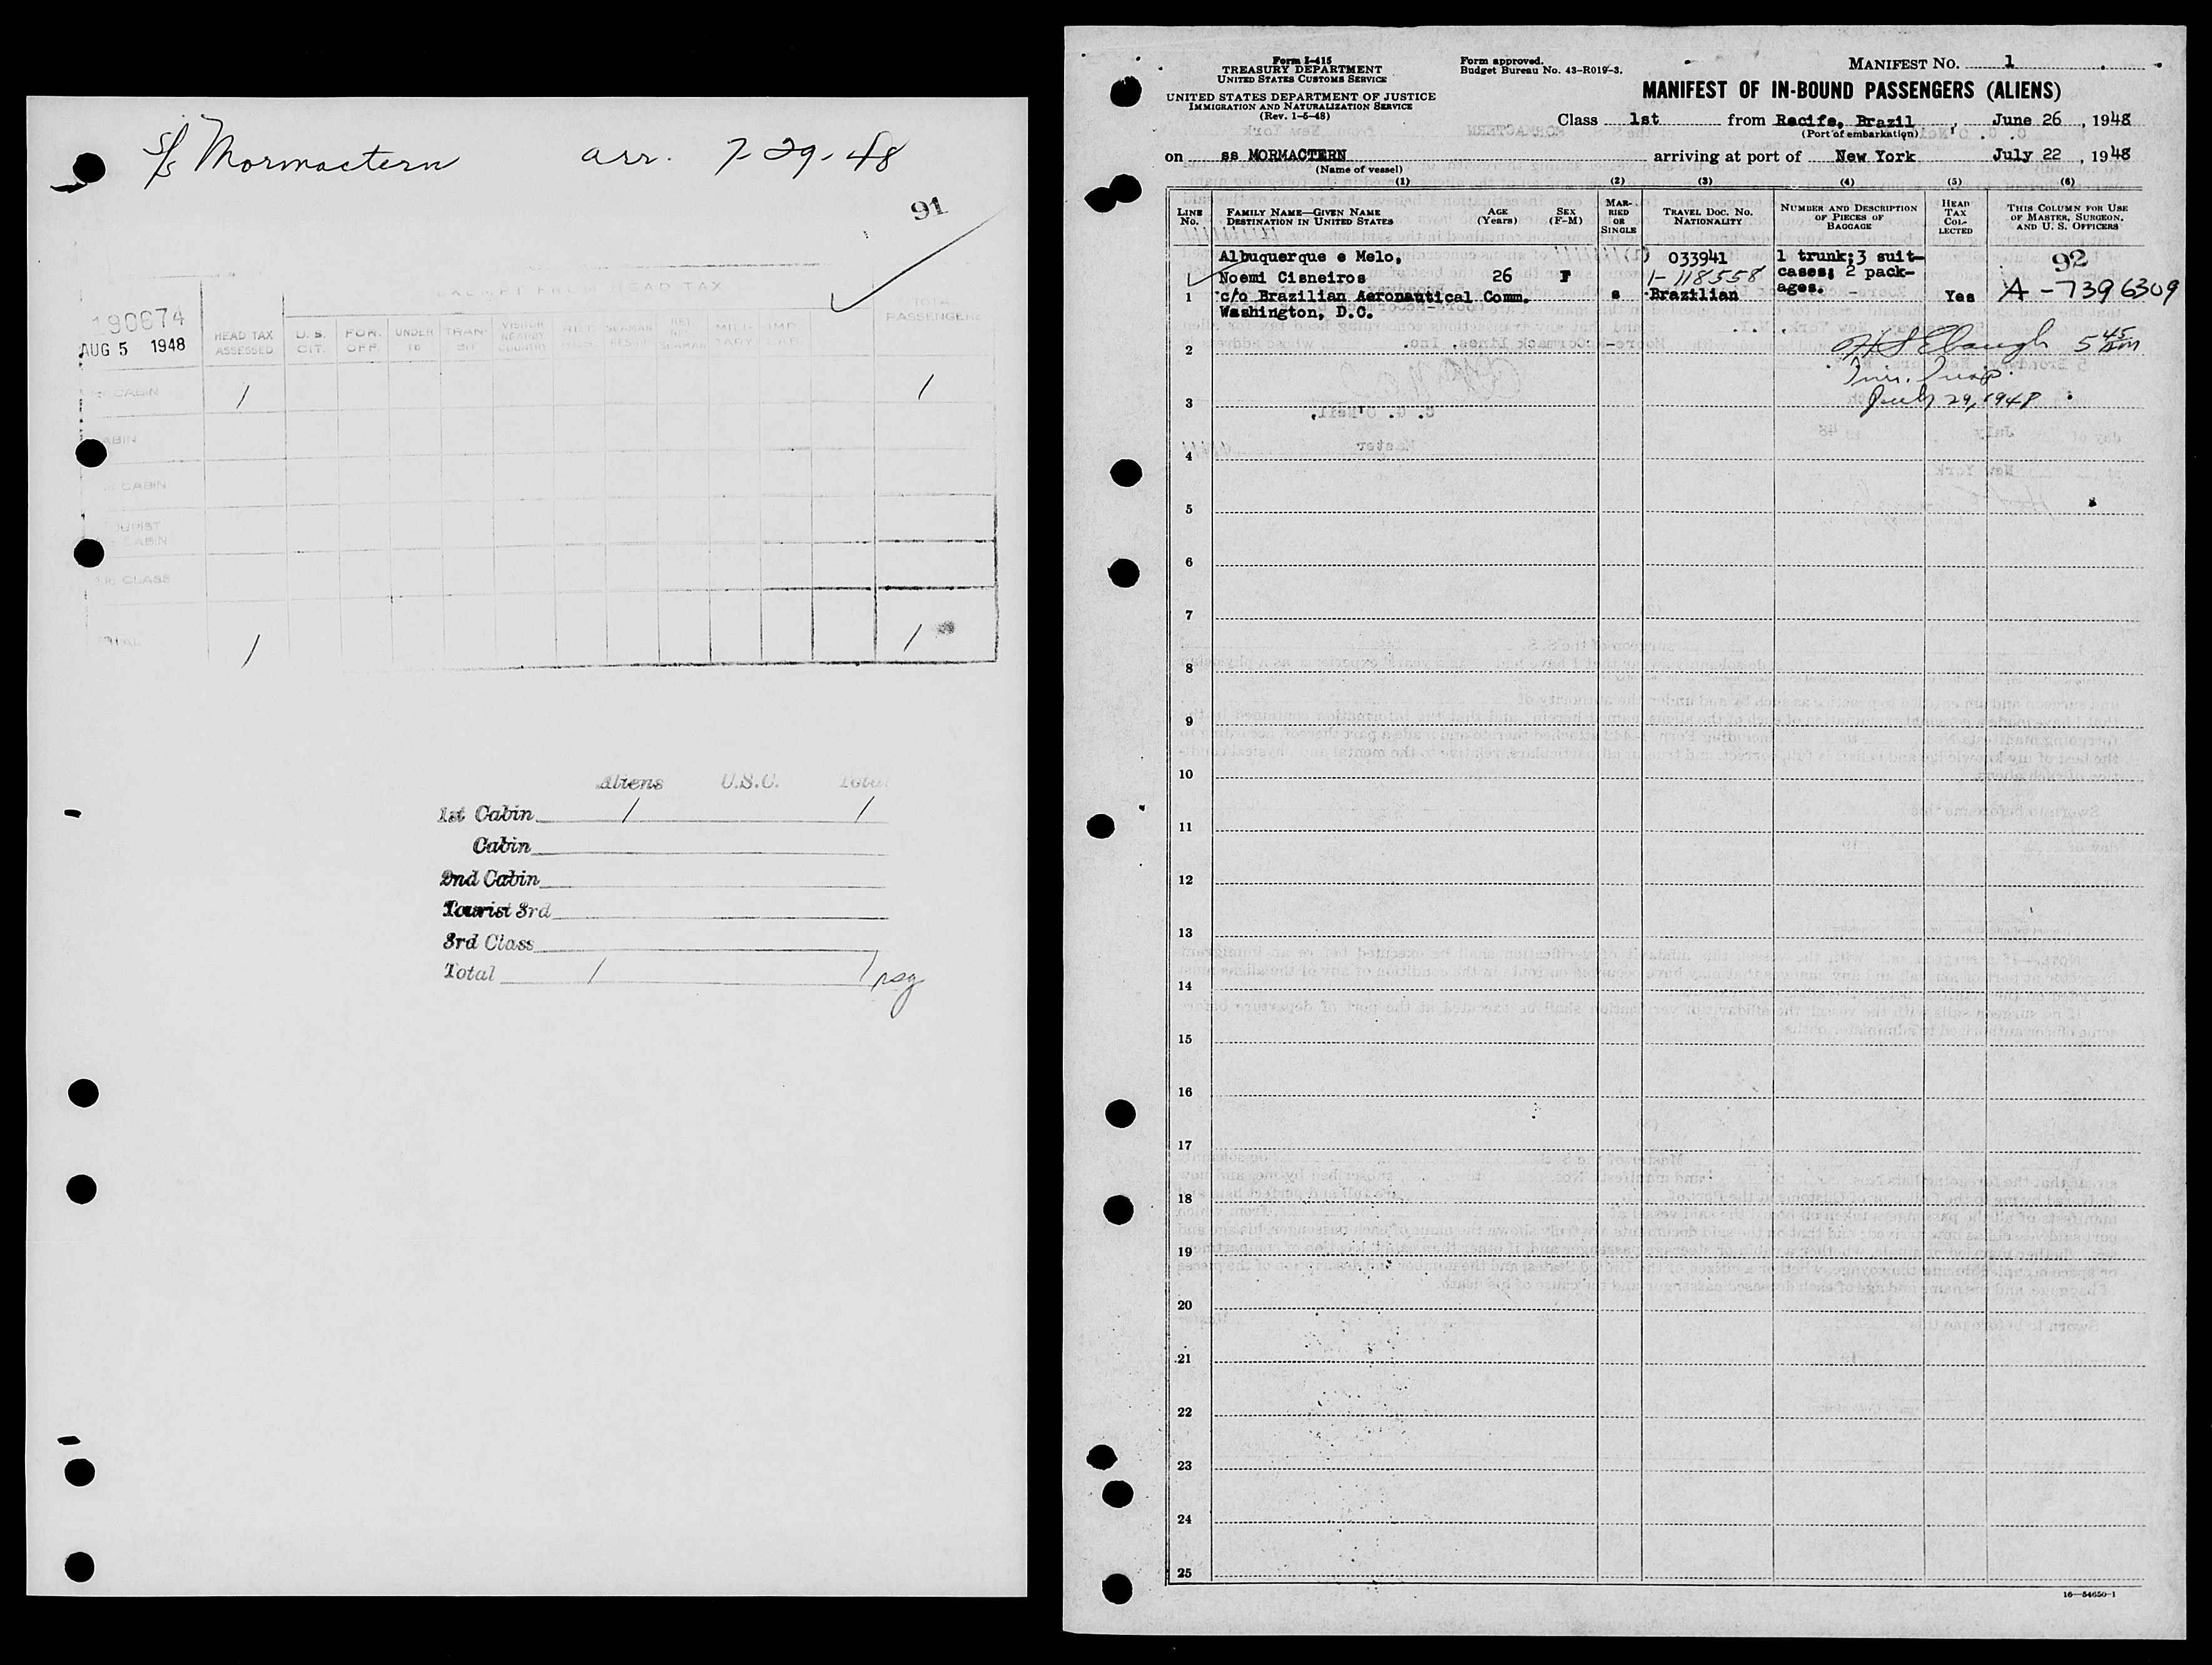 S/S Mormactern arr. 7-29-48
91
EXEMPT FROM HEAD TAX
190674
AUG 5 1948
HEAD TAX ASSESSED U. S. CIT. FOR. OFF. UNDER 16 TRAN- SIT VISITOR NEARBY COUNTRY MILI- TARY TOTAL PASSENGERS
CABIN 1 1
CABIN
CABIN
TOURIST
CABIN
CLASS
TOTAL 1 1
Aliens U.S.C. Total
1st Cabin 1 1
Cabin
2nd Cabin
Tourist 3rd
3rd Class
Total 1 1
Form I-415
TREASURY DEPARTMENT
UNITED STATES CUSTOMS SERVICE
UNITED STATES DEPARTMENT OF JUSTICE
IMMIGRATION AND NATURALIZATION SERVICE
(Rev. 1-5-48)
Form approved.
Budget Bureau No. 43-R019-3.
MANIFEST NO. 1
MANIFEST OF IN-BOUND PASSENGERS (ALIENS)
Class 1st from Recife, Brazil, June 26, 1948
(Port of embarkation)
on ss MORMACTERN arriving at port of New York July 22, 1948
(Name of vessel)
(1) (2) (3) (4) (5) (6)
LINE No. FAMILY NAME—GIVEN NAME DESTINATION IN UNITED STATES AGE (Years) SEX (F-M) MAR- RIED OR SINGLE TRAVEL DOC. NO. NATIONALITY NUMBER AND DESCRIPTION OF PIECES OF BAGGAGE HEAD TAX COL- LECTED THIS COLUMN FOR USE OF MASTER, SURGEON, AND U. S. OFFICERS
Albuquerque e Melo, 033941 1 trunk; 3 suit- 92
Noemi Cisneiros 26 F 1-118558 cases; 2 pack-
1 c/o Brazilian Aeronautical Comm. s Brazilian ages. Yes A-7396309
Washington, D.C.
2 H S Ebaugh 5 45 AM
Imm. Insp.
3 July 29, 1948
4
5
6
7
8
9
10
11
12
13
14
15
16
17
18
19
20
21
22
23
24
25
16—54650-1